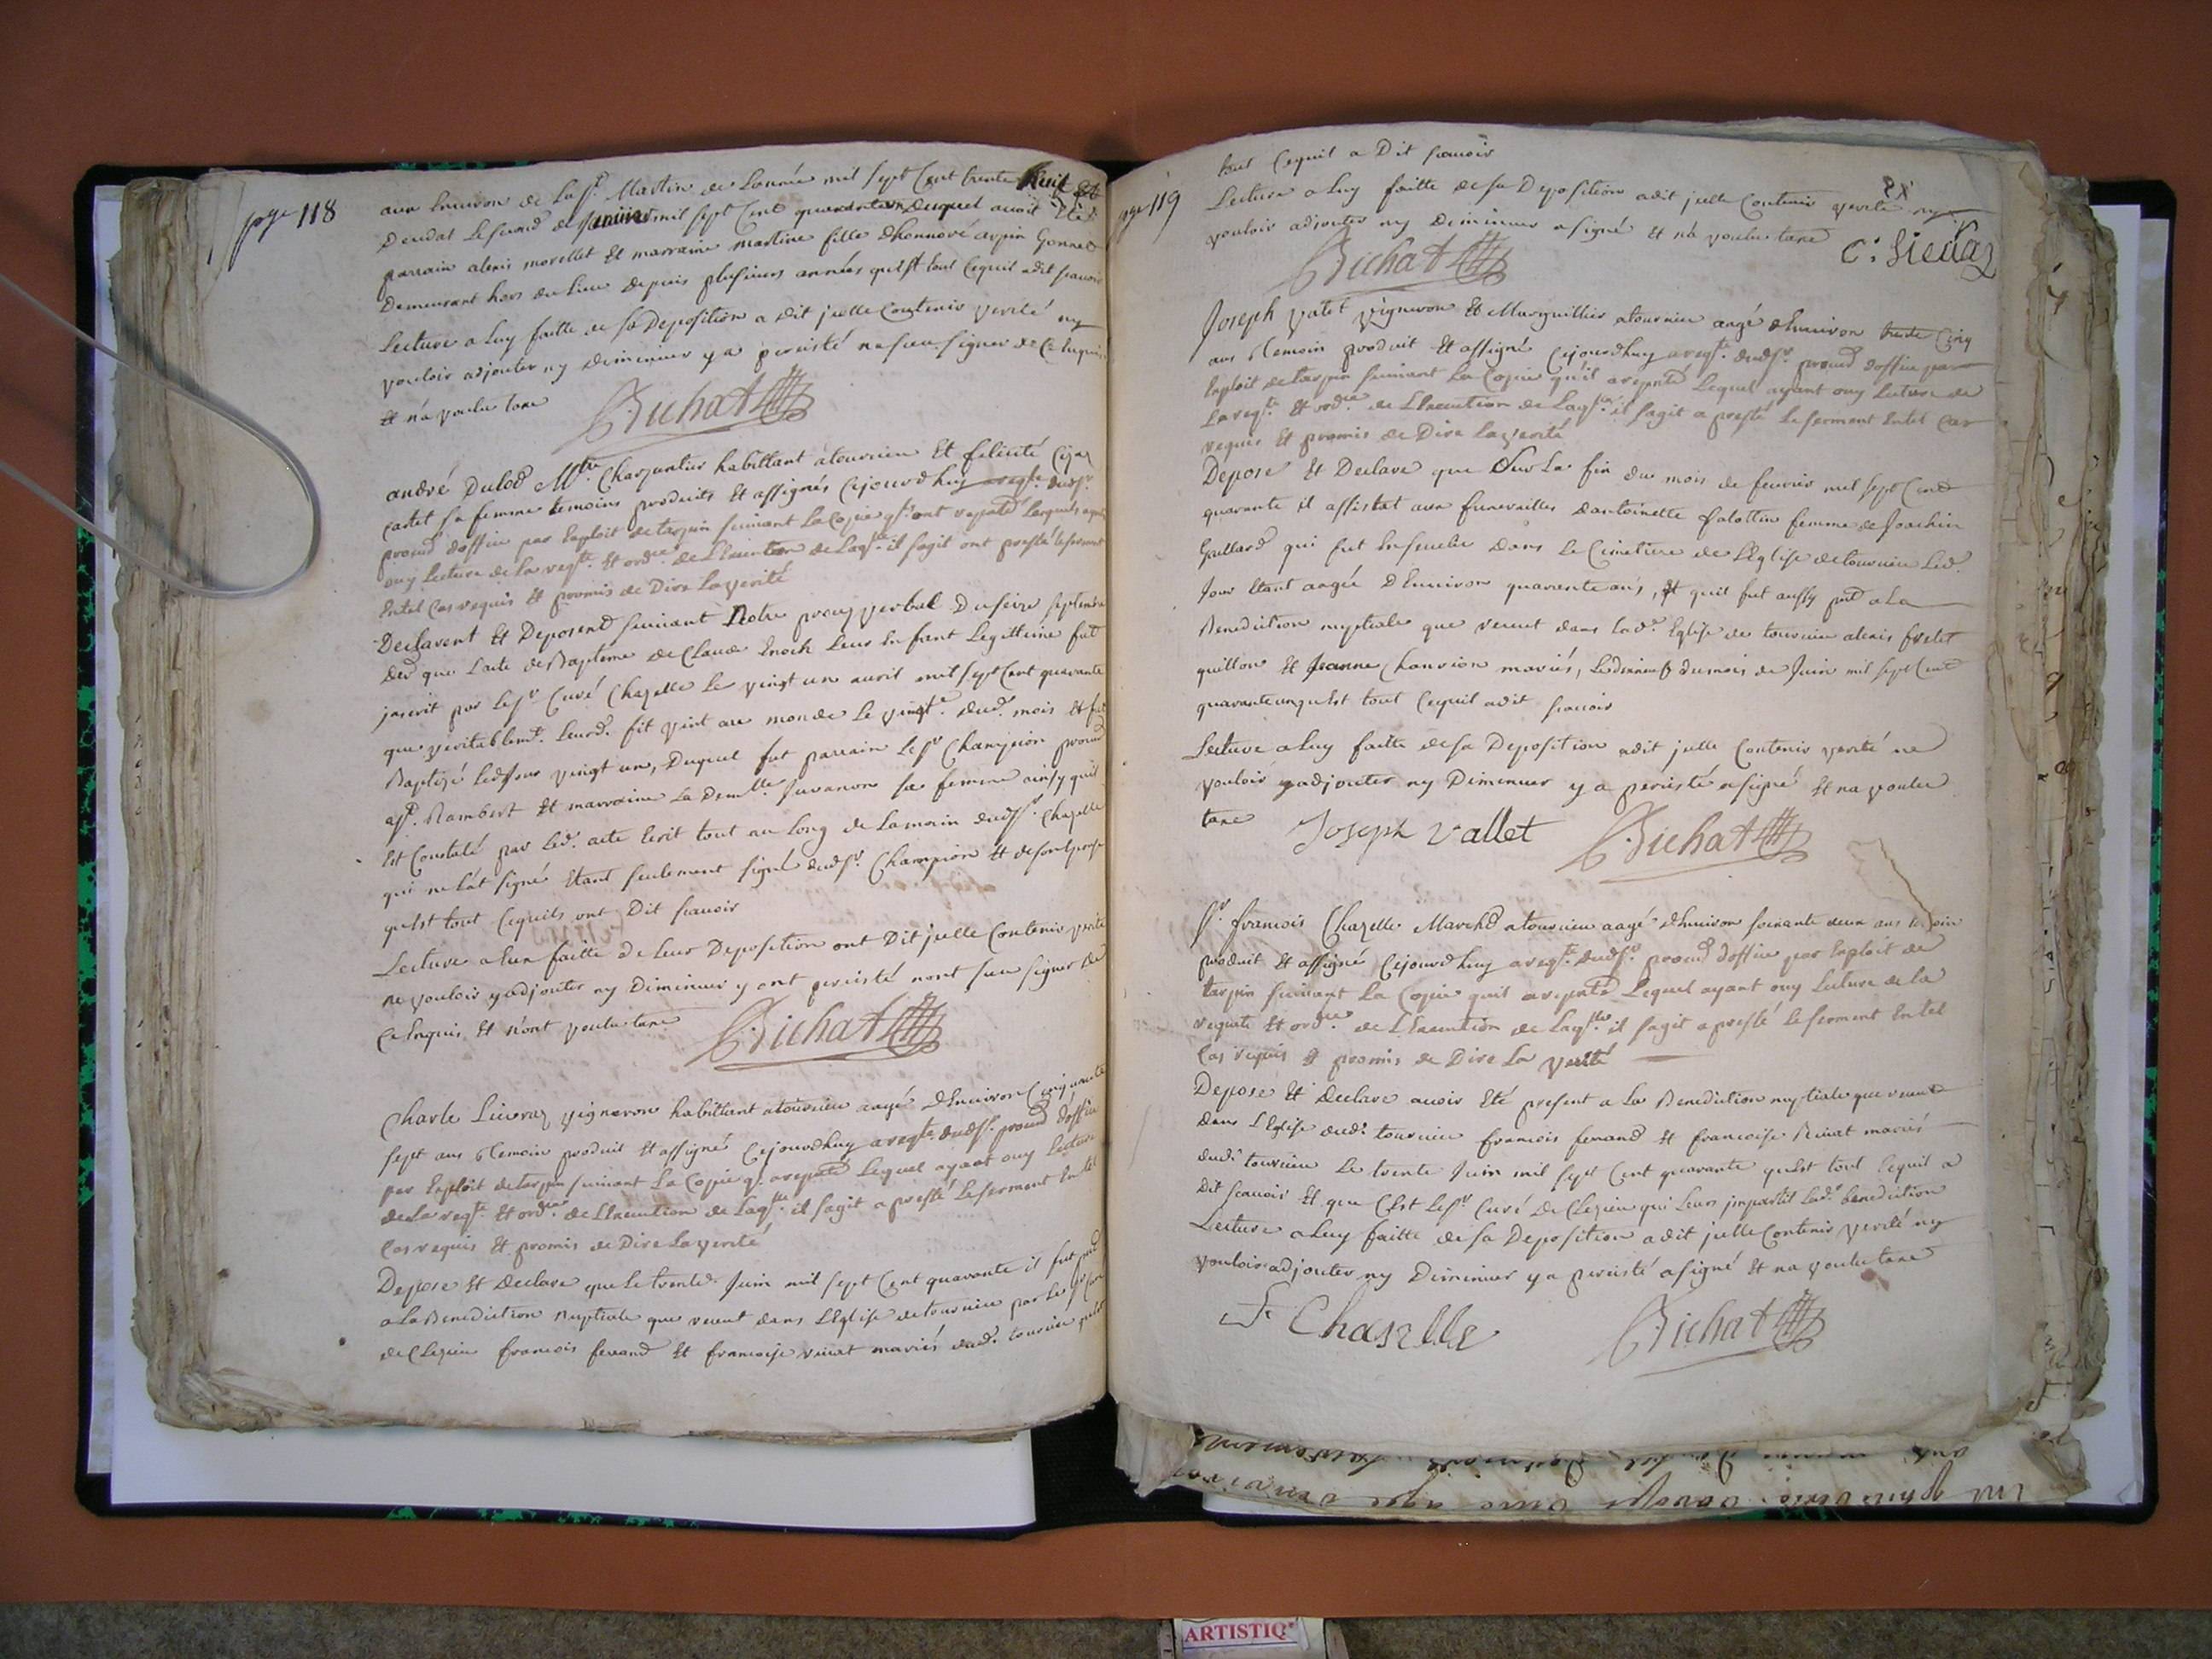 page 118
aux Environ de La St. Martin de Lannée mil sept Cent trente huit Et
Deudat Le second de Janvier mil sept Cent quarante un Duquel avoit Eté
parrain alexis morellet Et marraine martine fille dhonnoré arpin Gonnet
Demeurant hors du Lieu Depuis plusieurs années qu'Est tout Cequil adit scavoir
Lecture a Luy faitte de sa Deposition a dit jcelle Contenir verité ny
vouloir adjouter ny diminuer y a persisté na sceu signer de Ce Enquis
Et n'a voulu taxe Bichat
andré Dulod Mtre. Charpentier habittant atournieu Et felicité
cartet sa femme temoins produits Et assignés Cejourdhuy a reqte. dudsr.
procud. doffice par Exploit de tarpin suivant La Copie qls. ont repntée Lesquels ayant
ouy Lecture de la reqte. Et ordce. de LExecution de Laqlle. il sagit ont presté le serment
Entel Cas requis Et promis de Dire La verité
Declarent Et Deposent suivant Notre procez verbal Duseize septembre
der que Lacte de Baptême de Claude Enoch Leur Enfant Legittime fut
jnscrit par Le Sr. Curé Chazelle Le vingt un avril mil sept Cent quarante
que veritablemt. Leurd. fils vint au monde Le vingt. dud. mois Et fut
Baptizé Led. Jour vingt un, Duquel fut parrain Le Sr. Champion procud
a St. Rambert Et marraine La Demlle. Juvanon sa femme ainsy quil
Est Constaté par Led. acte Ecrit tout au Long de La main dud Sr. Chazelle
qui ne l'at signé Etant seulement signé dud Sr. Champion Et de son Epouse
qu'Est tout Cequils ont Dit scavoir
Lecture a Eux faitte de Leur Deposition ont Dit jcelle Contenir verité
ne vouloir y adjouter ny Diminuer y ont persisté nont sceu signer de
Ce Enquis Et n'ont voulu taxe Bichat
Charle Lievraz vigneron habittant atournieu aagé dEnviron Cinquante
sept ans temoin produit Et assigné Cejourdhuy a reqte. dudsr. procud d'office
par Exploit de tarpin suivant La Copie q. a repnté Lequel ayant ouy Lecture
de La reqte. Et ordce. de LExecution de Laqlle. il sagit a presté Le serment En tel
Cas requis Et promis de Dire La verité
Depose Et Declare que Le trente Juin mil sept Cent quarante il fut pnt
a La Benediction Nuptiale que recut dans LEglise de tournieu par Le Sr. Curé
de Clezieu francois ferrand Et francoise rivat mariés dud. tournieu
page 119
tout Cequil a Dit scavoir
Lecture a Luy faitte de sa Deposition adit jcelle Contenir verité ny
vouloir adjouter ny Diminuer a signé Et n'a voulu taxe
Bichat C: Lievraz
Joseph valet vigneron Et Marguillier atournieu aagé dEnviron trente Cinq
ans temoin produit Et assigné Cejourdhuy a reqte. dudsr. procud doffice par
Exploit de tarpin suivant La Copie qu'il a repnté Lequel ayant ouy Lecture de
La reqte. Et ordce. de LExecution de Laqlle. il sagit a presté Le serment Entel Cas
requis Et promis de Dire La verité
Depose Et Declare que Sur La fin du mois de fevrier mil sept Cent
quarante il assistat aux funerailles dantoinette falottin femme de Joachin
Gallard qui fut Ensevelie dans Le Cimetiere de LEglise de tournieu Led.
Jour Etant aagée DEnviron quarante ans, Et quil fut aussy pnt a La
Benediction nuptiale que recut dans Lad. Eglise de tournieu alexis frelet
guillon Et Jeanne Chanvion mariés, Le dernier du mois de Juin mil sept Cent
quarante un qu'Est tout Cequil adit scavoir
Lecture a Luy faitte de sa Deposition adit jcelle Contenir verité ne
vouloir y adjouter ny Diminuer y a persisté a signé Et na voulu
taxe Joseph Vallet Bichat
Sr. francois Chazelle Marchd atournieu aagé dEnviron soixante deux ans temoin
produit Et assigné Cejourdhuy a reqte. dudsr. procud doffice par Exploit de
tarpin suivant La Copie quil a repnté Lequel ayant ouy Lecture de La
requete Et ordce. de LExecution de Laqlle. il sagit a presté Le serment En tel
Cas requis Et promis de Dire La verité
Depose Et Declare avoir Eté present a La Benediction nuptiale que recut
dans LEglise dud. tournieu francois ferrand Et francoise Rivat mariés
dud. tournieu Le trente Juin mil sept Cent quarante qu'Est tout Cequil a
Dit scavoir Et que C'Est Le Sr. Curé De Clezieu qui Leurs jmpartit Lad. benediction
Lecture a Luy faitte de sa Deposition adit jcelle Contenir verité ny
vouloir adjouter ny Diminuer y a persisté a signé Et na voulu taxe
F. Chazelle Bichat
ARTISTIQ